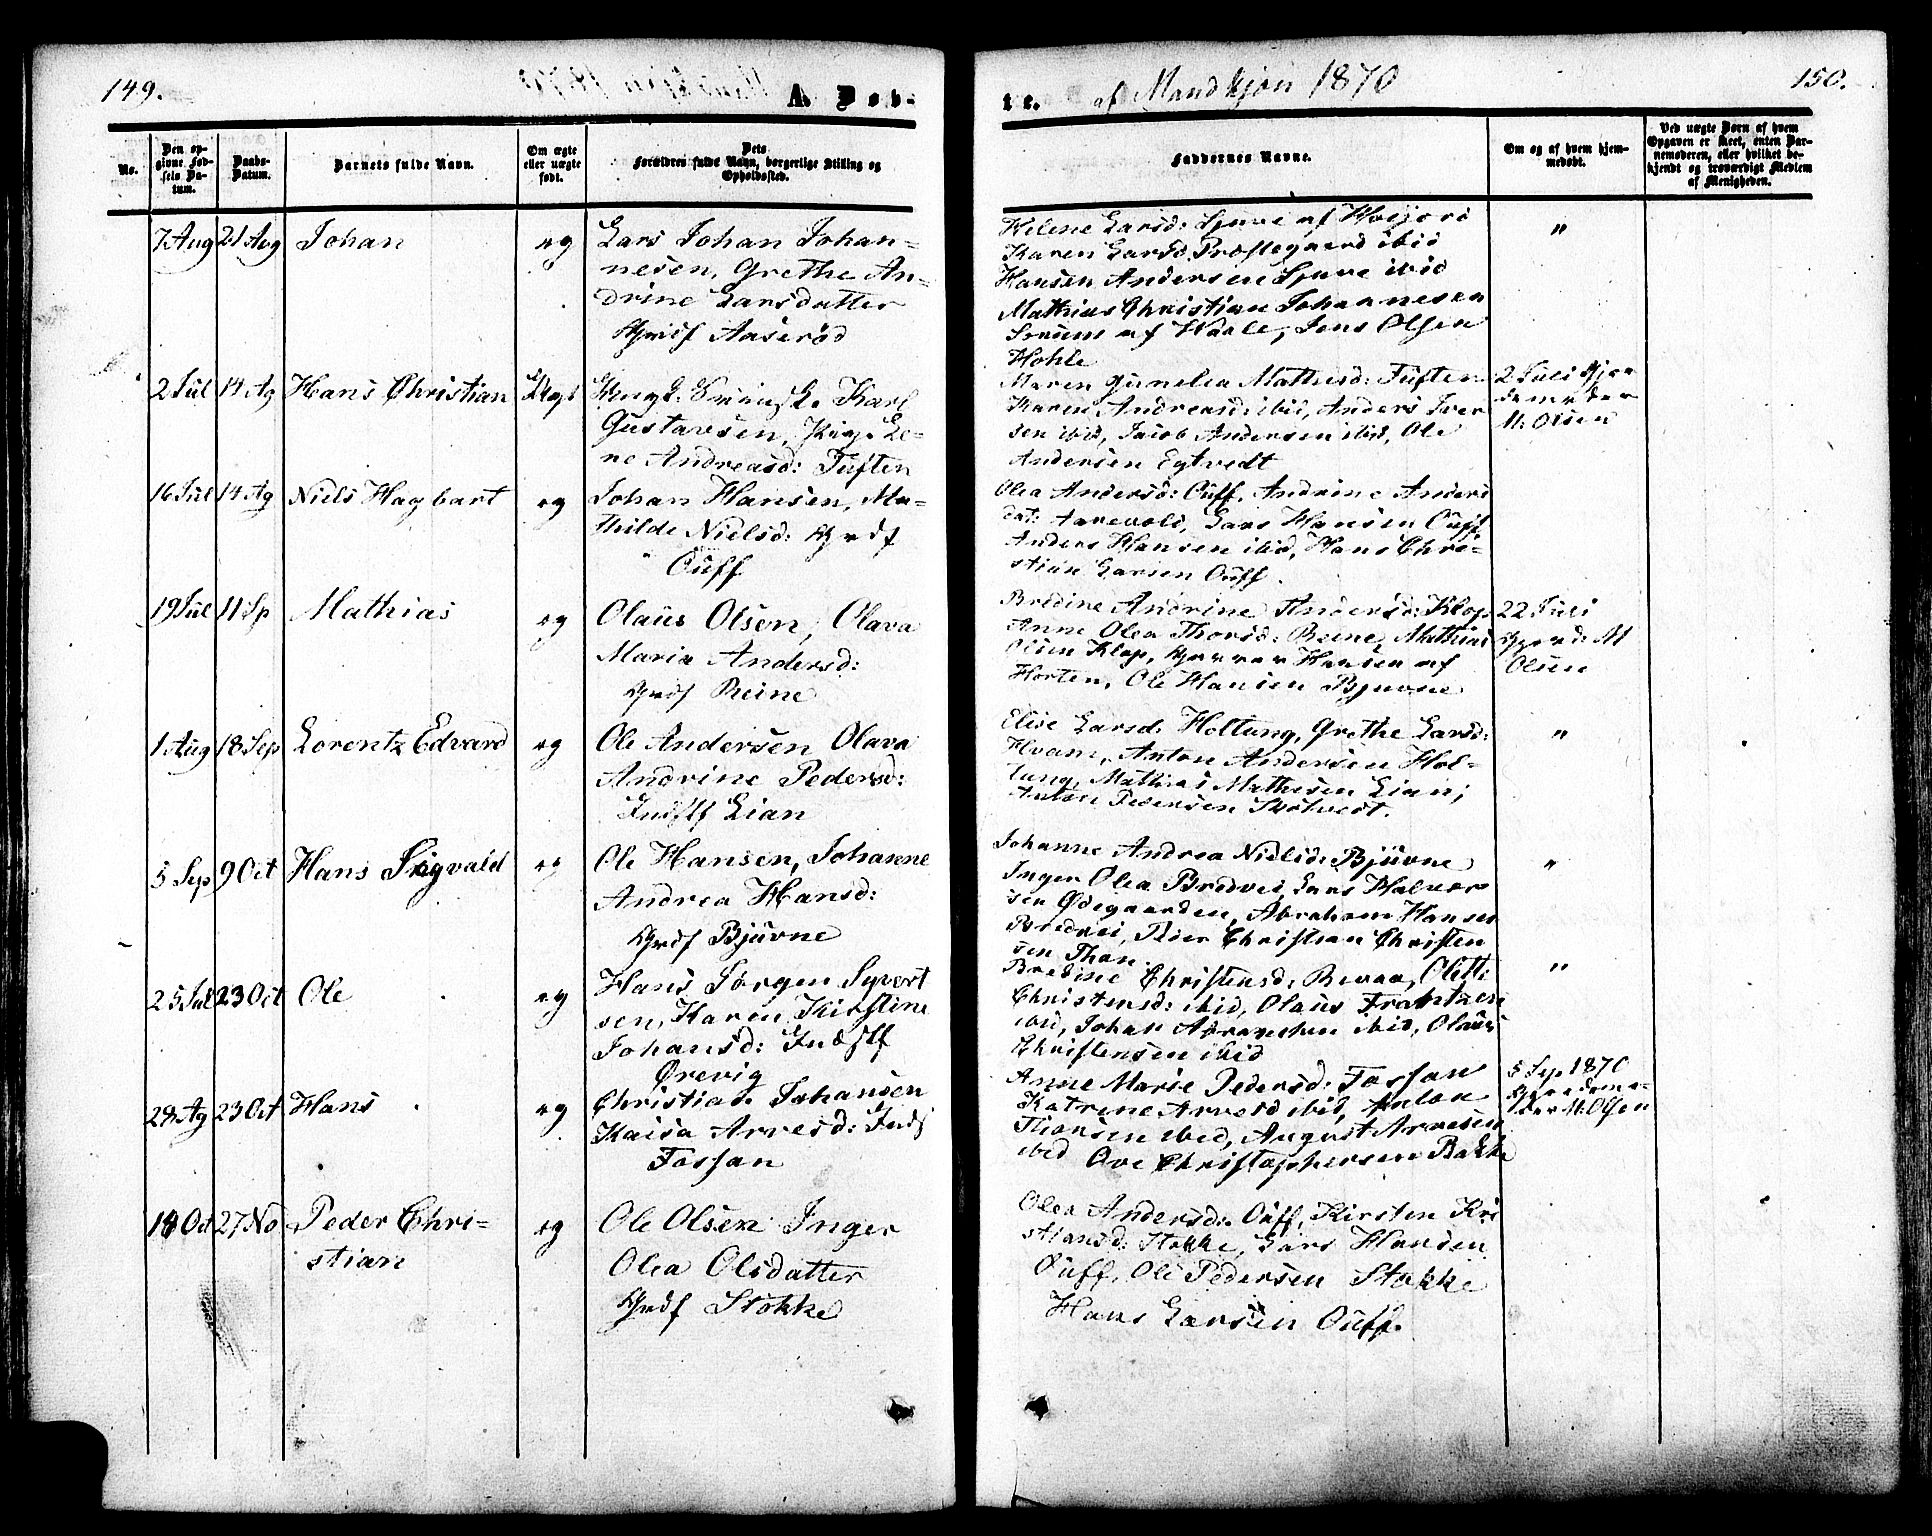 149.
A. Døb-
te.
af Mandkjøn 1870
150.
No.
Den op-
givne Fød-
sels Da-
tum.
Daabs-
Datum.
Barnets fulde Navn.
Om ægte
eller uægte
født.
Dets
Forældres fulde Navn, borgerlige Stilling og
Opholdssted.
Faddernes Navne.
Om og af hvem hjem-
medøbt.
Ved uægte Børn af hvem
Opgaven er skeet, enten Bar-
nemoderen, eller hvilket be-
kjendt og troværdigt Medlem
af Menigheden.
7 Aug 21 Aug Johan
Lars Johan Johan-
nesen, Grethe An-
drine Larsdatter
Grdf Aaserød
Helene Larsd:
Karen Larsd. Præstegaard ibid
Hansen Andersen ibid
Mathias Christian Johannesen
af Laxle, Jens Olsen
"
2 Jul 14 Ag Hans Christian
Karl
Gustavsen, Le-
ne Andreasd: Tuften
Maren Mathisd: Tuften
Karen Andreasd: ibid, Anders Iver
sen ibid, Jacob Andersen ibid, Ole
Andersen
2 Juli
M. Olsen
16 Jul 14 Ag Niels Hagbart
eg
Johan Hansen, Ma-
thilde Nielsd: Grdf
Ouff
Olea Andersd: Ouff, Andrine Anders
dat: Lars Hansen Ouff
Anders Hansen ibid, Hans Chri-
stian Larsen Ouff.
19 Jul 11 Sp Mathias
eg
Olaus Olsen, Olava
Maria Andersd:
Grdf Reine
Bredine Andrine Andersd: Klop
Anne Olea Thorsd: Reine, Mathias
Olsen Klop, Hansen af
Horten, Ole Hansen Bjuvne
22 Juli
M
Olsen
1 Aug 18 Sep Lorentz Edvard
eg
Ole Andersen Olava
Andrine Pedersd:
Indstf Lian
Elise Larsd. Holtung, Grethe Larsd:
Hvam, Anton Andersen Hol-
tung, Mathias Mathisen Lian;
Anton Pedersen
"
5 Sep 9 Oct Hans Sigvald
eg
Ole Hansen, Johanne
Andrea Hansd:
Grdf Bjuvne
Johanne Andrea Nielsd: Bjuvne
Inger Olea Bredvei, Lars Halvor
sen Ødegaarden, Abraham Hansen
Bredvei, Peder Christian Christen
sen Than.
"
25 Jul 23 Oct Ole
eg
Hans Jørgen Syvert
sen, Karen Kirstine
Johansd: Indstf
Ørevig
Bredine Christensd: Olette
Christensd: ibid, Olaus Frantzen
ibid, Johan ibid, Olaus
Christensen ibid
"
29 Ag 23 Oct Hans
eg
Christian Johansen
Kaisa Arvesd: Inds
Fossan
Anne Marie Pedersd: Fossan
Katrine Arvesd ibid, Anton
ibid, August Arvesen
ibid Ove Christophersen Bakke
5 Sep 1870
M. Olsen
18 Oct 27 No Peder Chri-
stian
eg
Ole Olsen Inger
Olea Olsdatter
Grdf Stokke
Olea Andersd: Ouff, Kirsten Kri
stiansd: Stokke, Lars Hansen
Ouff, Ole Pedersen Stokke
Hans Larsen Ouff.